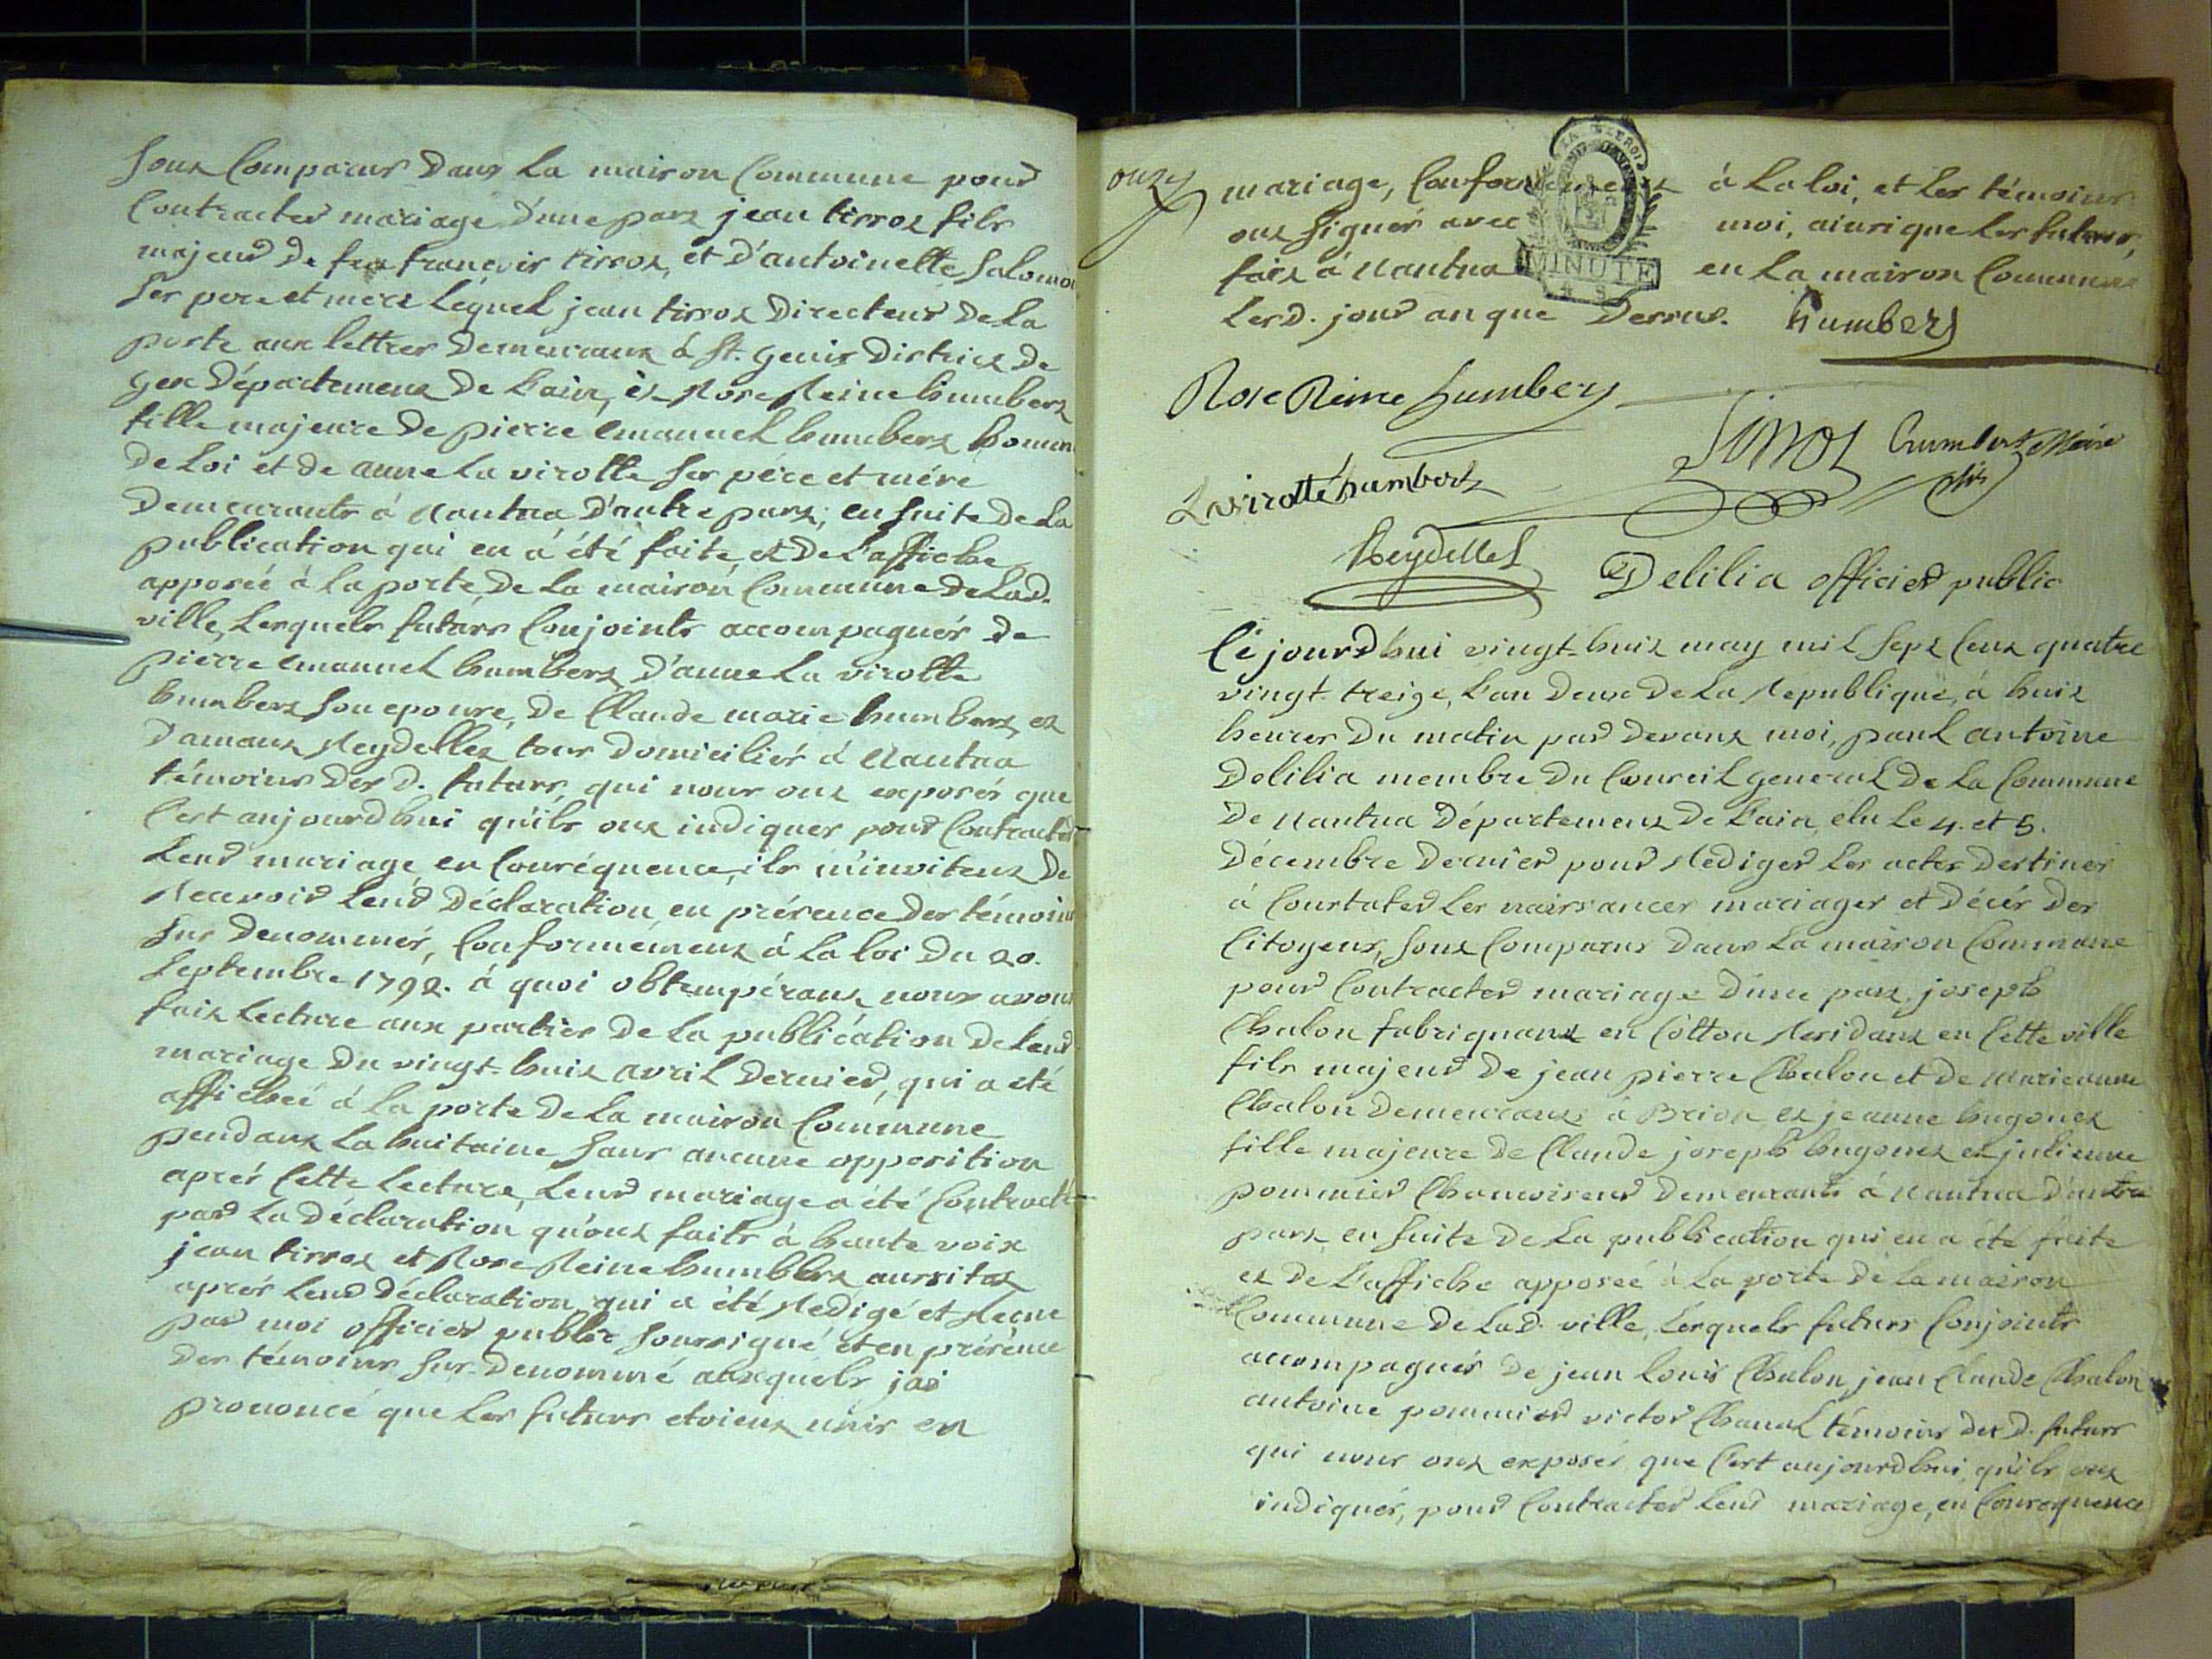 sont Comparus dans la maison Commune pour
Contracter mariage d'une part jean tirrot fils
majeur de feu françois tirrot, et d'antoinette Salomon
ses pere et mere lequel jean tirrot Directeur de la
poste aux lettres demeurant à St. Genis District de
Gex Département de L'ain, et Rose Reine humbert
fille majeure de pierre emanuel humbert homme
de Loi et de anne La virotte ses pére et mére
demeurants à Nantua d'autre part, en suite de la
publication qui en à été faite, et de L'affiche
apposée à la porte de la maison Commune de Lad.
ville, Lesquels futurs Conjoints accompagnés de
pierre emanuel humbert, d'anne La virotte
humbert son epouse, de Claude marie humbert, et
d'amant Reydellet tous domiciliés à Nantua
témoins des d. futurs, qui nous ont exposés que
C'est aujourd'hui qu'ils ont indiquer pour Contracter
Leur mariage, en Conséquence, ils m'invitent de
Recevoir Leur Déclaration, en présence des témoins
sus denommés, Conformément à la loi du 20.
septembre 1792. à quoi obtempérant, nous avons
fait Lecture aux parties de la publication de Leur
mariage du vingt-huit avril dernier, qui a été
affichée à la porte de la maison Commune
pendant la huitaine sans aucune opposition
aprés Cette Lecture, Leur mariage a été Contracté
par la déclaration qu'ont faits à haute voix
jean tirrot et Rose Reine humbert, aussitot
aprés Leur déclaration qui a été Redigé et Recue
par moi officier public soussigné et en présence
des témoins sus-denommé auxquels jai
prononcé que Les futurs etoient unis en
onze
mariage, Conformement à la loi, et les témoins
ont signés avec moi, ainsi que les futurs,
fait à Nantua en la maison Commune
Lesd. jour an que dessus. humbert
MINUTE
Rose Reine humbert
tirrot humbert Maire
Lavirotte humbert
Reydellet
Delilia officier public
Cejourd'hui vingt-huit may mil sept Cent quatre
vingt-treize, L'an deux de la Republique, à huit
heures du matin par devant moi, paul antoine
Delilia membre du Conseil general de la Commune
de Nantua Département de L'ain, elu Le 4. et 5.
décembre dernier pour Rediger Les actes destinés
à Constater Les naissances mariages et décés des
Citoyens, sont Comparus dans la maison Commune
pour Contracter mariage d'une part, joseph
Chalon fabriquant en Cotton Residant en Cette ville
fils majeur de jean pierre Chalon et de marieanne
Chalon demeurants à Brion et jeanne hugonet
fille majeure de Claude joseph hugonet et julienne
pommier Chamoiseur demeurants à Nantua d'autre
part, en suite de la publication qui en a été faite
et de L'affiche apposée à la porte de la maison
Commune de Lad. ville, Lesquels futurs Conjoints
accompagnés de jean Louis Chalon, jean Claude Chalon
antoine pommier victor Chanal témoins des d. futurs
qui nous ont exposés, que C'est aujourd'hui, qu'ils ont
indiqués, pour Contracter Leur mariage, en Consequence